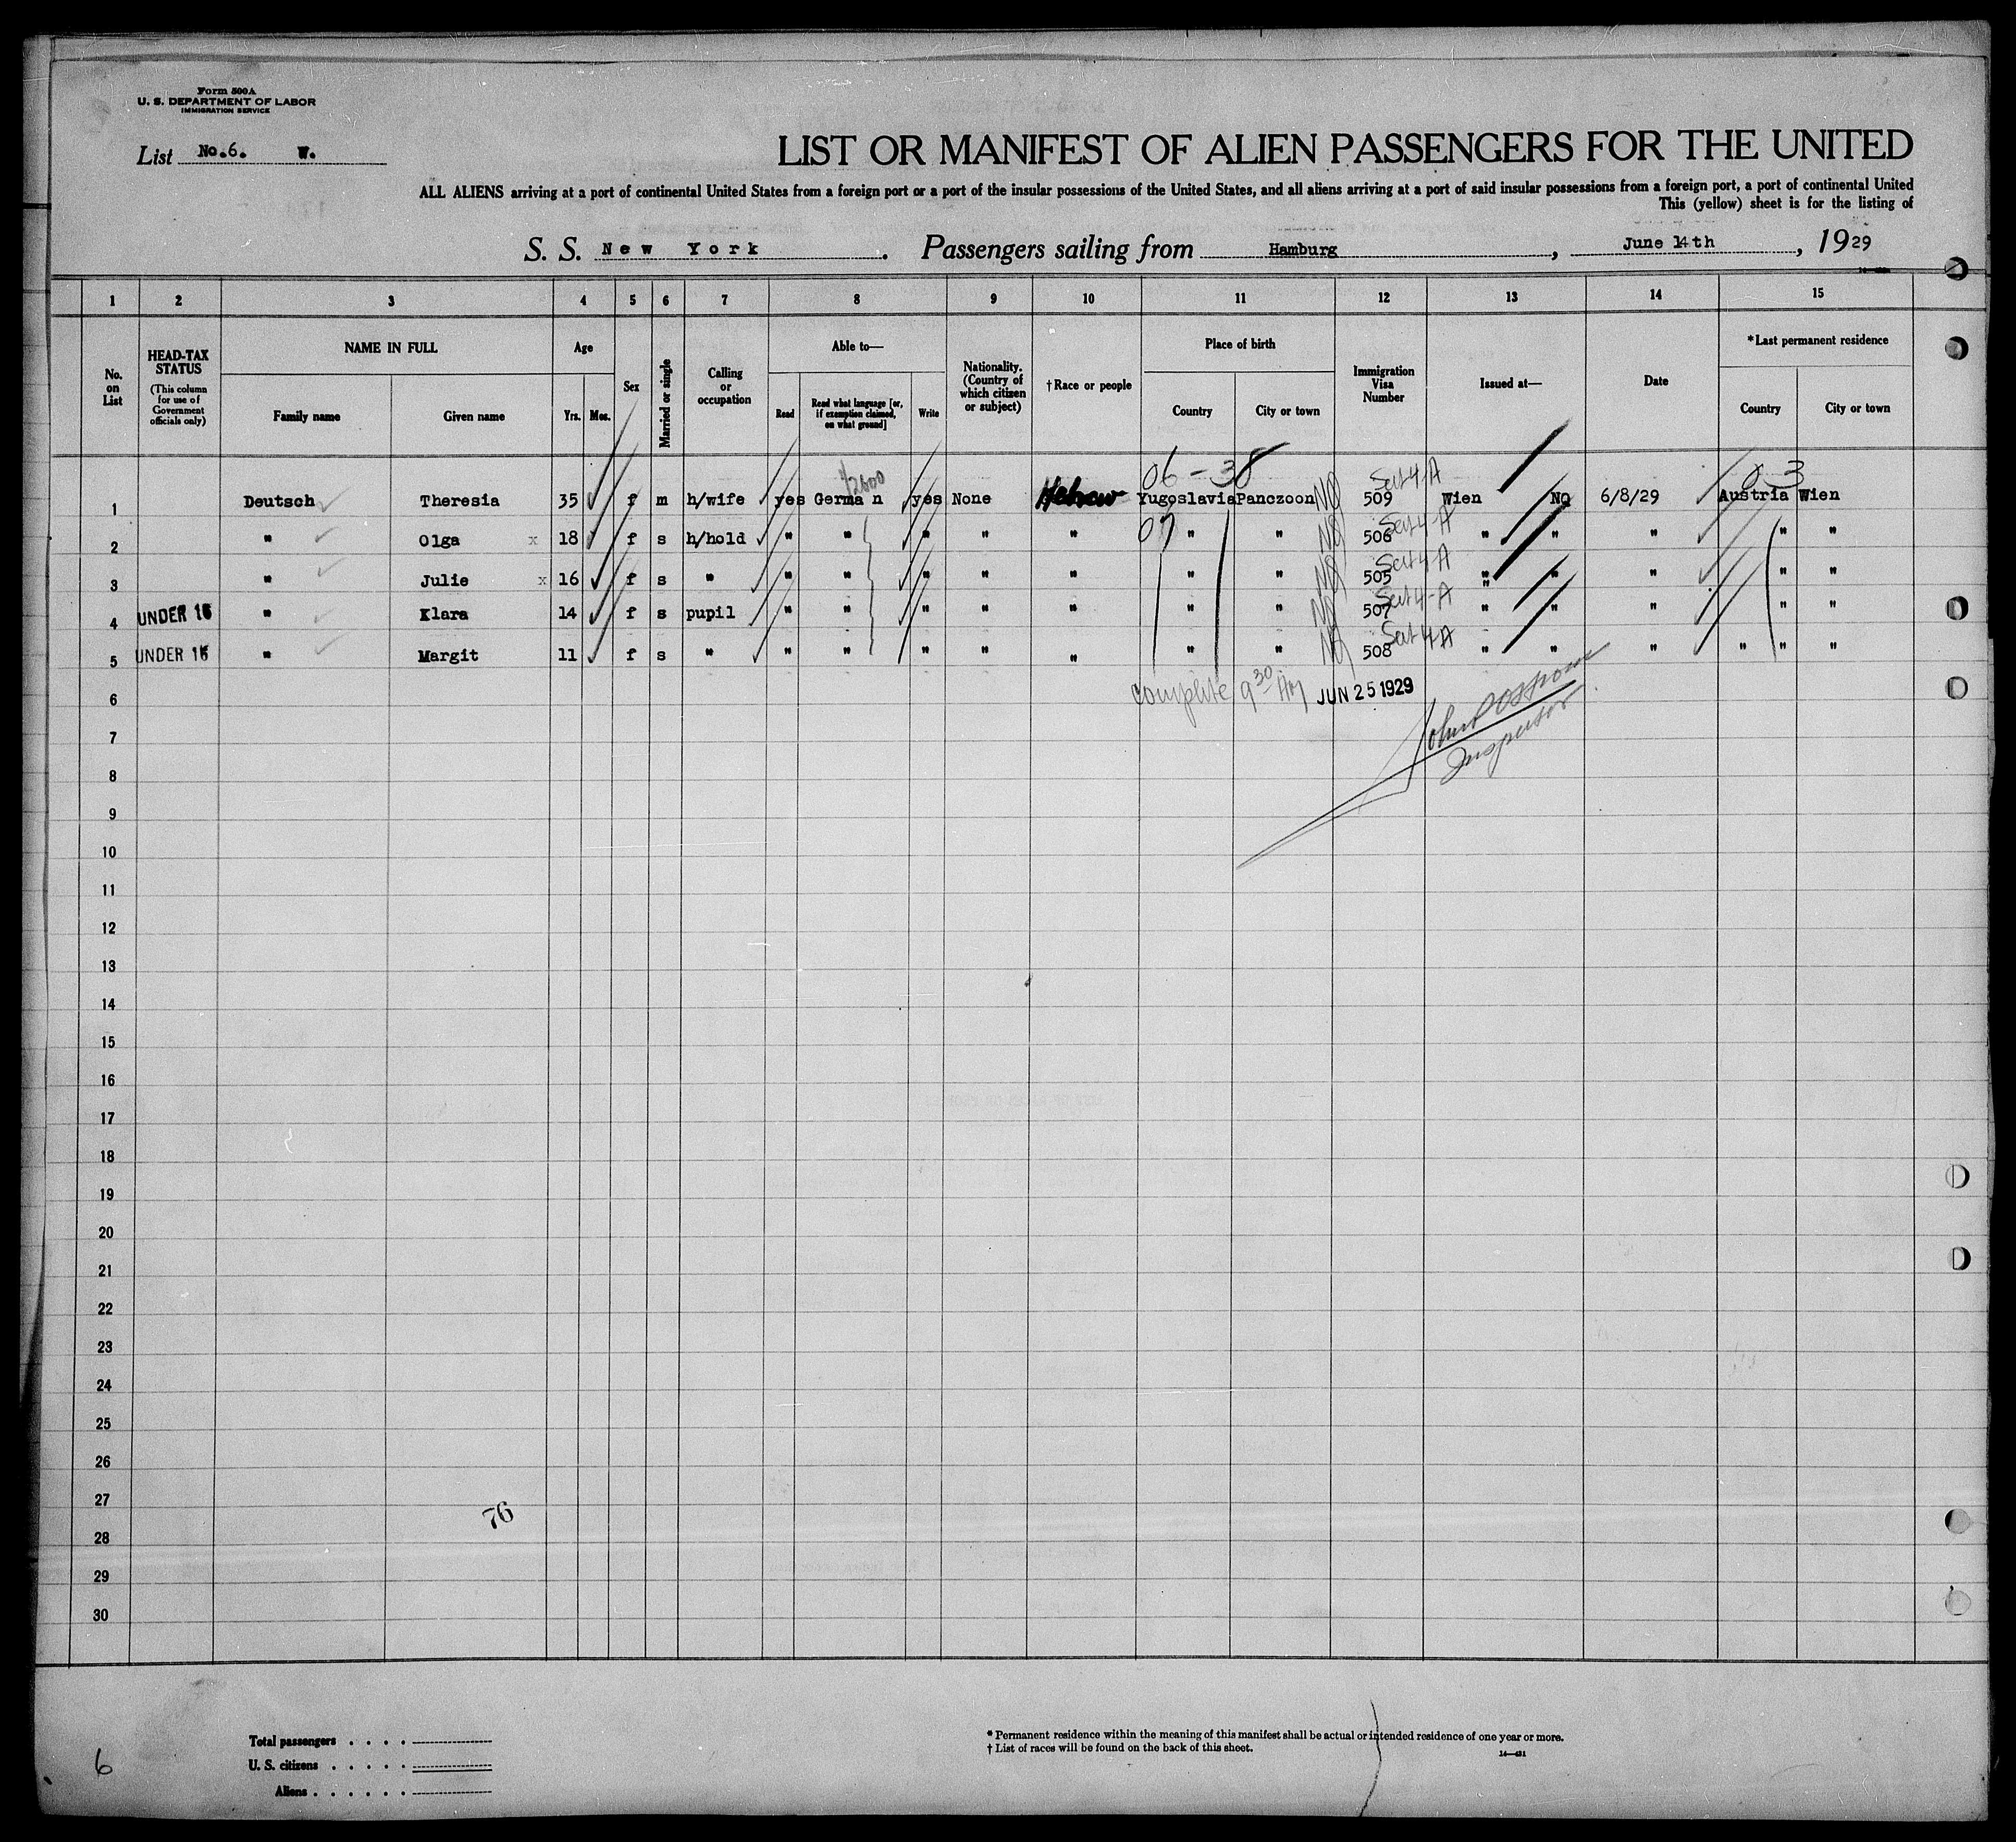 Form 500A
U. S. DEPARTMENT OF LABOR
IMMIGRATION SERVICE
List No.6. W.
LIST OR MANIFEST OF ALIEN PASSENGERS FOR THE UNITED
ALL ALIENS arriving at a port of continental United States from a foreign port or a port of the insular possessions of the United States, and all aliens arriving at a port of said insular possessions from a foreign port, a port of continental United
This (yellow) sheet is for the listing of
S. S. New York. Passengers sailing from Hamburg, June 14th, 1929
1 2 3 4 5 6 7 8 9 10 11 12 13 14 15
No. on List
HEAD-TAX STATUS
(This column for use of Government officials only)
NAME IN FULL
Family name Given name
Age
Yrs. Mos.
Sex
Married or single
Calling or occupation
Able to—
Read
Read what language [or, if exemption claimed, on what ground]
Write
Nationality. (Country of which citizen or subject)
†Race or people
Place of birth
Country City or town
Immigration Visa Number
Issued at—
Date
*Last permanent residence
Country City or town
06-38 Sect 4-A 03
1 Deutsch Theresia 35 f m h/wife yes German yes None Hebrew Yugoslavia Panczoon NQ 509 Wien NQ 6/8/29 Austria Wien
07 Sect 4-A
2 " Olga x 18 f s h/hold " " " " " " " NQ 506 " " " " "
Sect 4-A
3 " Julie x 16 f s " " " " " " " " NQ 505 " " " " "
Sect 4-A
4 UNDER 16 " Klara 14 f s pupil " " " " " " " NQ 507 " " " " "
Sect 4-A
5 UNDER 16 " Margit 11 f s " " " " " " " " NQ 508 " " " " " "
6 complete 9 30 AM JUN 25 1929
7 Inspector
8
9
10
11
12
13
14
15
16
17
18
19
20
21
22
23
24
25
26
27
76
28
29
30
Total passengers
U. S. citizens
Aliens
6
* Permanent residence within the meaning of this manifest shall be actual or intended residence of one year or more.
† List of races will be found on the back of this sheet.
14—431